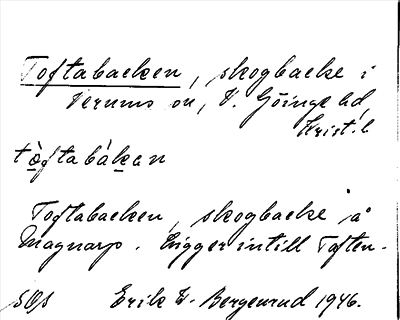 Toftabacken, skogbacke i
Verums sn, V. Göinge hd,
Krist. l
tòftabàkan
Toftabacken, skogbacke å
Magnarp. Ligger intill Toften.
SOS Erik V. Bergenrud 1946.